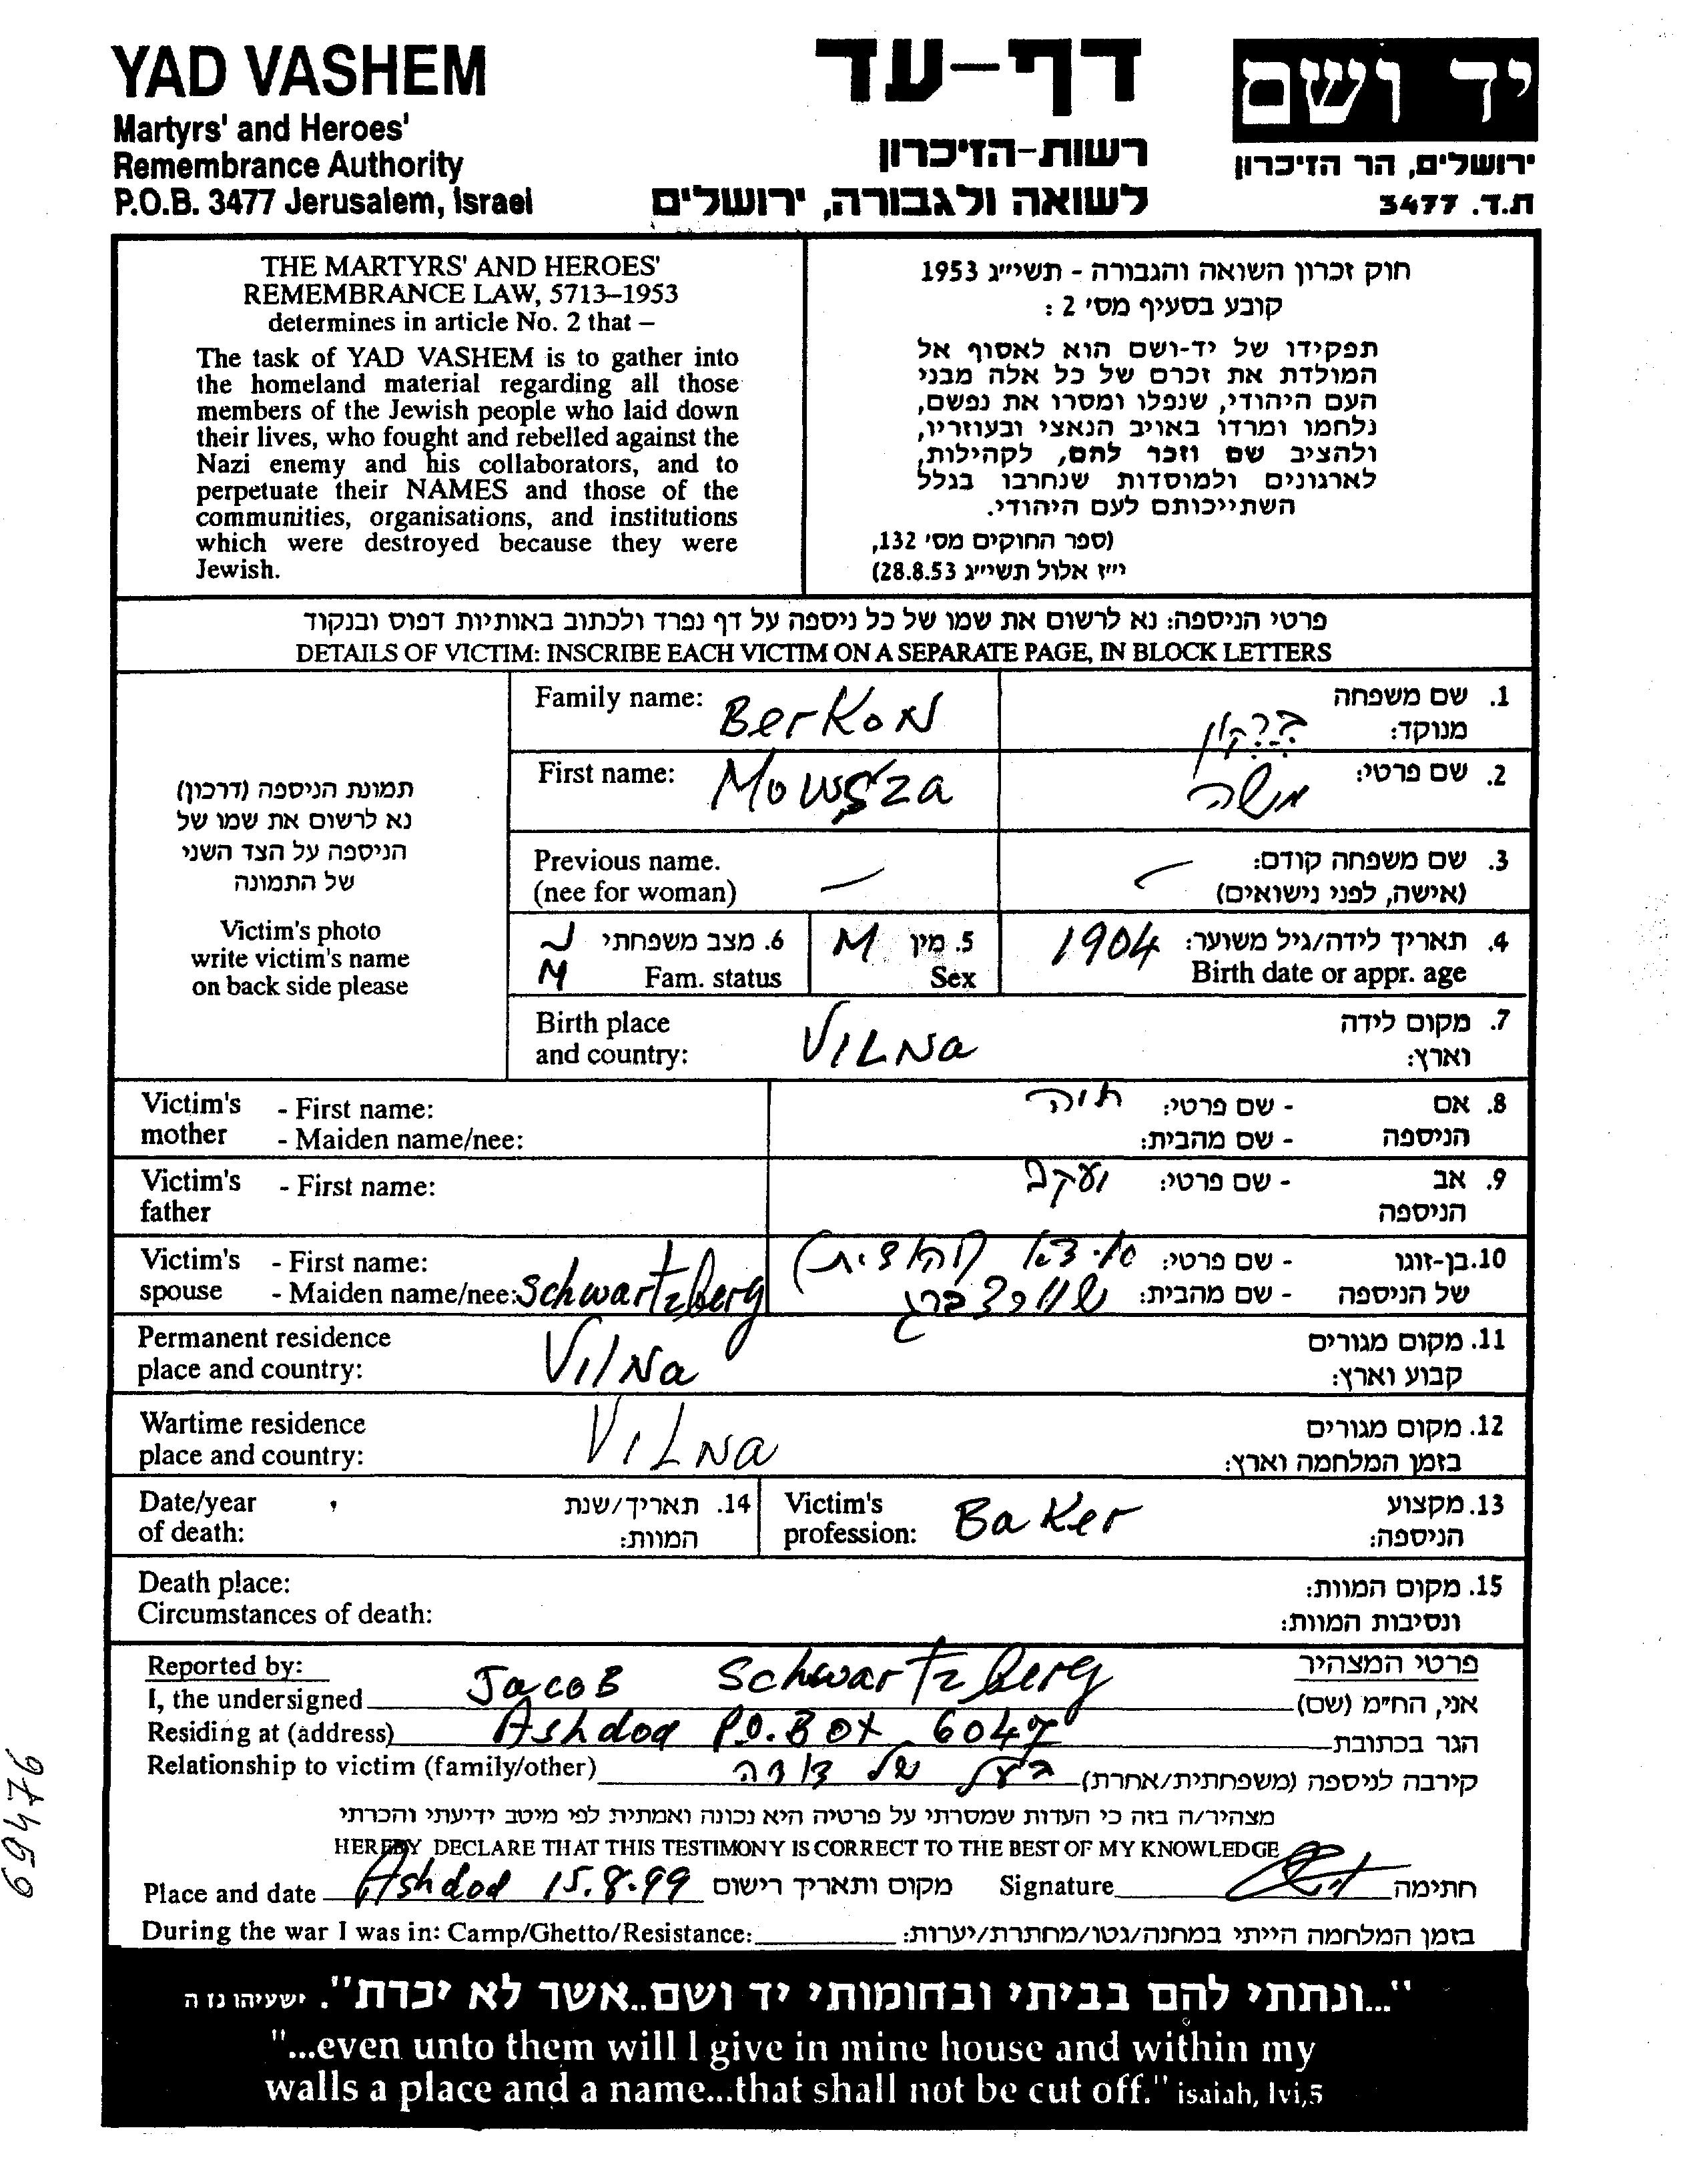 YAD VASHEM
Martyrs' and Heroes'
Remembrance Authority
P.O.B. 3477 Jerusalem, Israel
דף-עד
רשות-הזיכרון
לשואה ולגבורה, ירושלים
יד ושם
ירושלים, הר הזיכרון
ת.ד. 3477
THE MARTYRS' AND HEROES'
REMEMBRANCE LAW, 5713–1953
determines in article No. 2 that –
The task of YAD VASHEM is to gather into
the homeland material regarding all those
members of the Jewish people who laid down
their lives, who fought and rebelled against the
Nazi enemy and his collaborators, and to
perpetuate their NAMES and those of the
communities, organisations, and institutions
which were destroyed because they were
Jewish.
חוק זכרון השואה והגבורה - תשי״ג 1953
קובע בסעיף מס׳ 2 :
תפקידו של יד-ושם הוא לאסוף אל
המולדת את זכרם של כל אלה מבני
העם היהודי, שנפלו ומסרו את נפשם,
נלחמו ומרדו באויב הנאצי ובעוזריו,
ולהציב שם וזכר להם, לקהילות,
לארגונים ולמוסדות שנחרבו בגלל
השתייכותם לעם היהודי.
(ספר החוקים מס׳ 132,
י״ז אלול תשי״ג 28.8.53)
פרטי הניספה: נא לרשום את שמו של כל ניספה על דף נפרד ולכתוב באותיות דפוס ובנקוד
DETAILS OF VICTIM: INSCRIBE EACH VICTIM ON A SEPARATE PAGE, IN BLOCK LETTERS
תמונת הניספה (דרכון)
נא לרשום את שמו של
הניספה על הצד השני
של התמונה
Victim's photo
write victim's name
on back side please
Family name: BerKoN ברקון 1. שם משפחה
מנוקד:
First name: Mowsza משה 2. שם פרטי:
Previous name. — 3. שם משפחה קודם:
(nee for woman) (אישה, לפני נישואים)
6. מצב משפחתי נ 5. מין M 4. תאריך לידה/גיל משוער: 1904
M Fam. status Sex Birth date or appr. age
Birth place 7. מקום לידה
and country: VILNa וארץ:
Victim's - First name: חיה - שם פרטי: 8. אם
mother - Maiden name/nee: - שם מהבית: הניספה
Victim's - First name: יעקב - שם פרטי: 9. אב
father הניספה
Victim's - First name: - שם פרטי: 10. בן-זוגו
spouse - Maiden name/nee: Schwartzberg שוורצברג - שם מהבית: של הניספה
Permanent residence 11. מקום מגורים
place and country: VilNa קבוע וארץ:
Wartime residence 12. מקום מגורים
place and country: ViLNa בזמן המלחמה וארץ:
Date/year 14. תאריך/שנת
of death: המוות:
Victim's 13. מקצוע
profession: BaKer הניספה:
Death place: 15. מקום המוות:
Circumstances of death: ונסיבות המוות:
Reported by: פרטי המצהיר
I, the undersigned JacoB Schwartzberg אני, הח״מ (שם)
Residing at (address) Ashdod P.O.Box 6047 הגר בכתובת
Relationship to victim (family/other) בעל של דודה קירבה לניספה (משפחתית/אחרת)
מצהיר/ה בזה כי העדות שמסרתי על פרטיה היא נכונה ואמתית לפי מיטב ידיעתי והכרתי
HEREBY DECLARE THAT THIS TESTIMONY IS CORRECT TO THE BEST OF MY KNOWLEDGE
Place and date Ashdod 15.8.99 מקום ותאריך רישום Signature חתימה
During the war I was in: Camp/Ghetto/Resistance: בזמן המלחמה הייתי במחנה/גטו/מחתרת/יערות:
"...ונתתי להם בביתי ובחומותי יד ושם..אשר לא יכרת". ישעיהו נו ה
"...even unto them will I give in mine house and within my
walls a place and a name...that shall not be cut off." isaiah, lvi,5